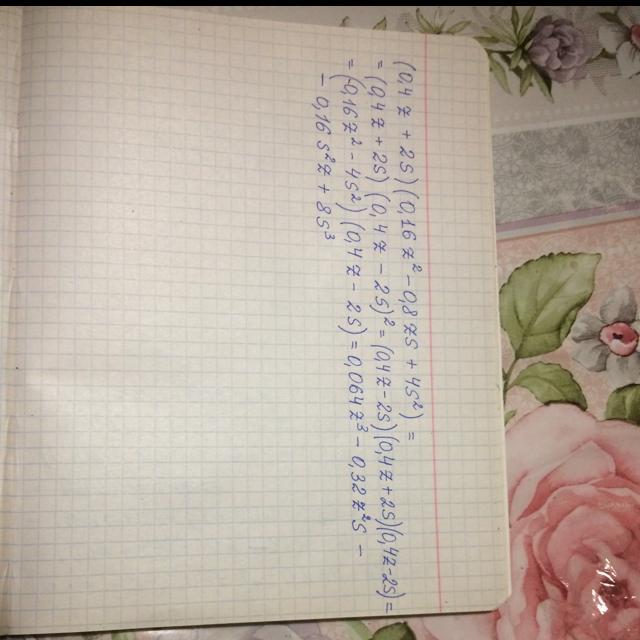 (0,4z + 2s)(0,16z² - 0,8zs + 4s²) =
= (0,4z + 2s)(0,4z - 2s)² = (0,4z - 2s)(0,4z + 2s)(0,4z - 2s) =
= (0,16z² - 4s²)(0,4z - 2s) = 0,064z³ - 0,32z²s -
- 0,16s²z + 8s³